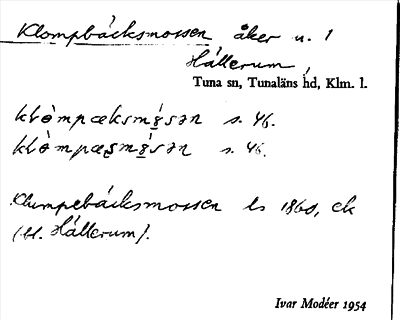 Klompbäcksmossen åker u. 1
Hällerum,
Tuna sn, Tunaläns hd, Klm. l.
s. 46.
s. 46.
Klumpebäcksmossen ls 1860, ek
(11. Hällerum).
Ivar Modéer 1954